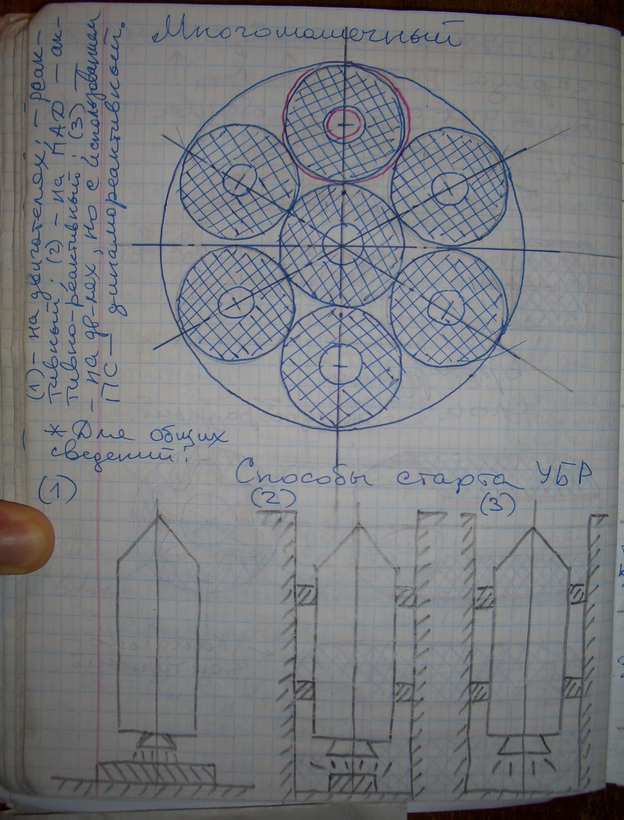 Многошашечный
(1) - на двигателях; - реак-
тивный. (2) - на ПАД - ак-
тивно-реактивный (3) -
- на дв-лях, но с использованием
ПС - динамореактивный.
* Для общих
сведений:
Способы старта УБР
(1)
(2)
(3)